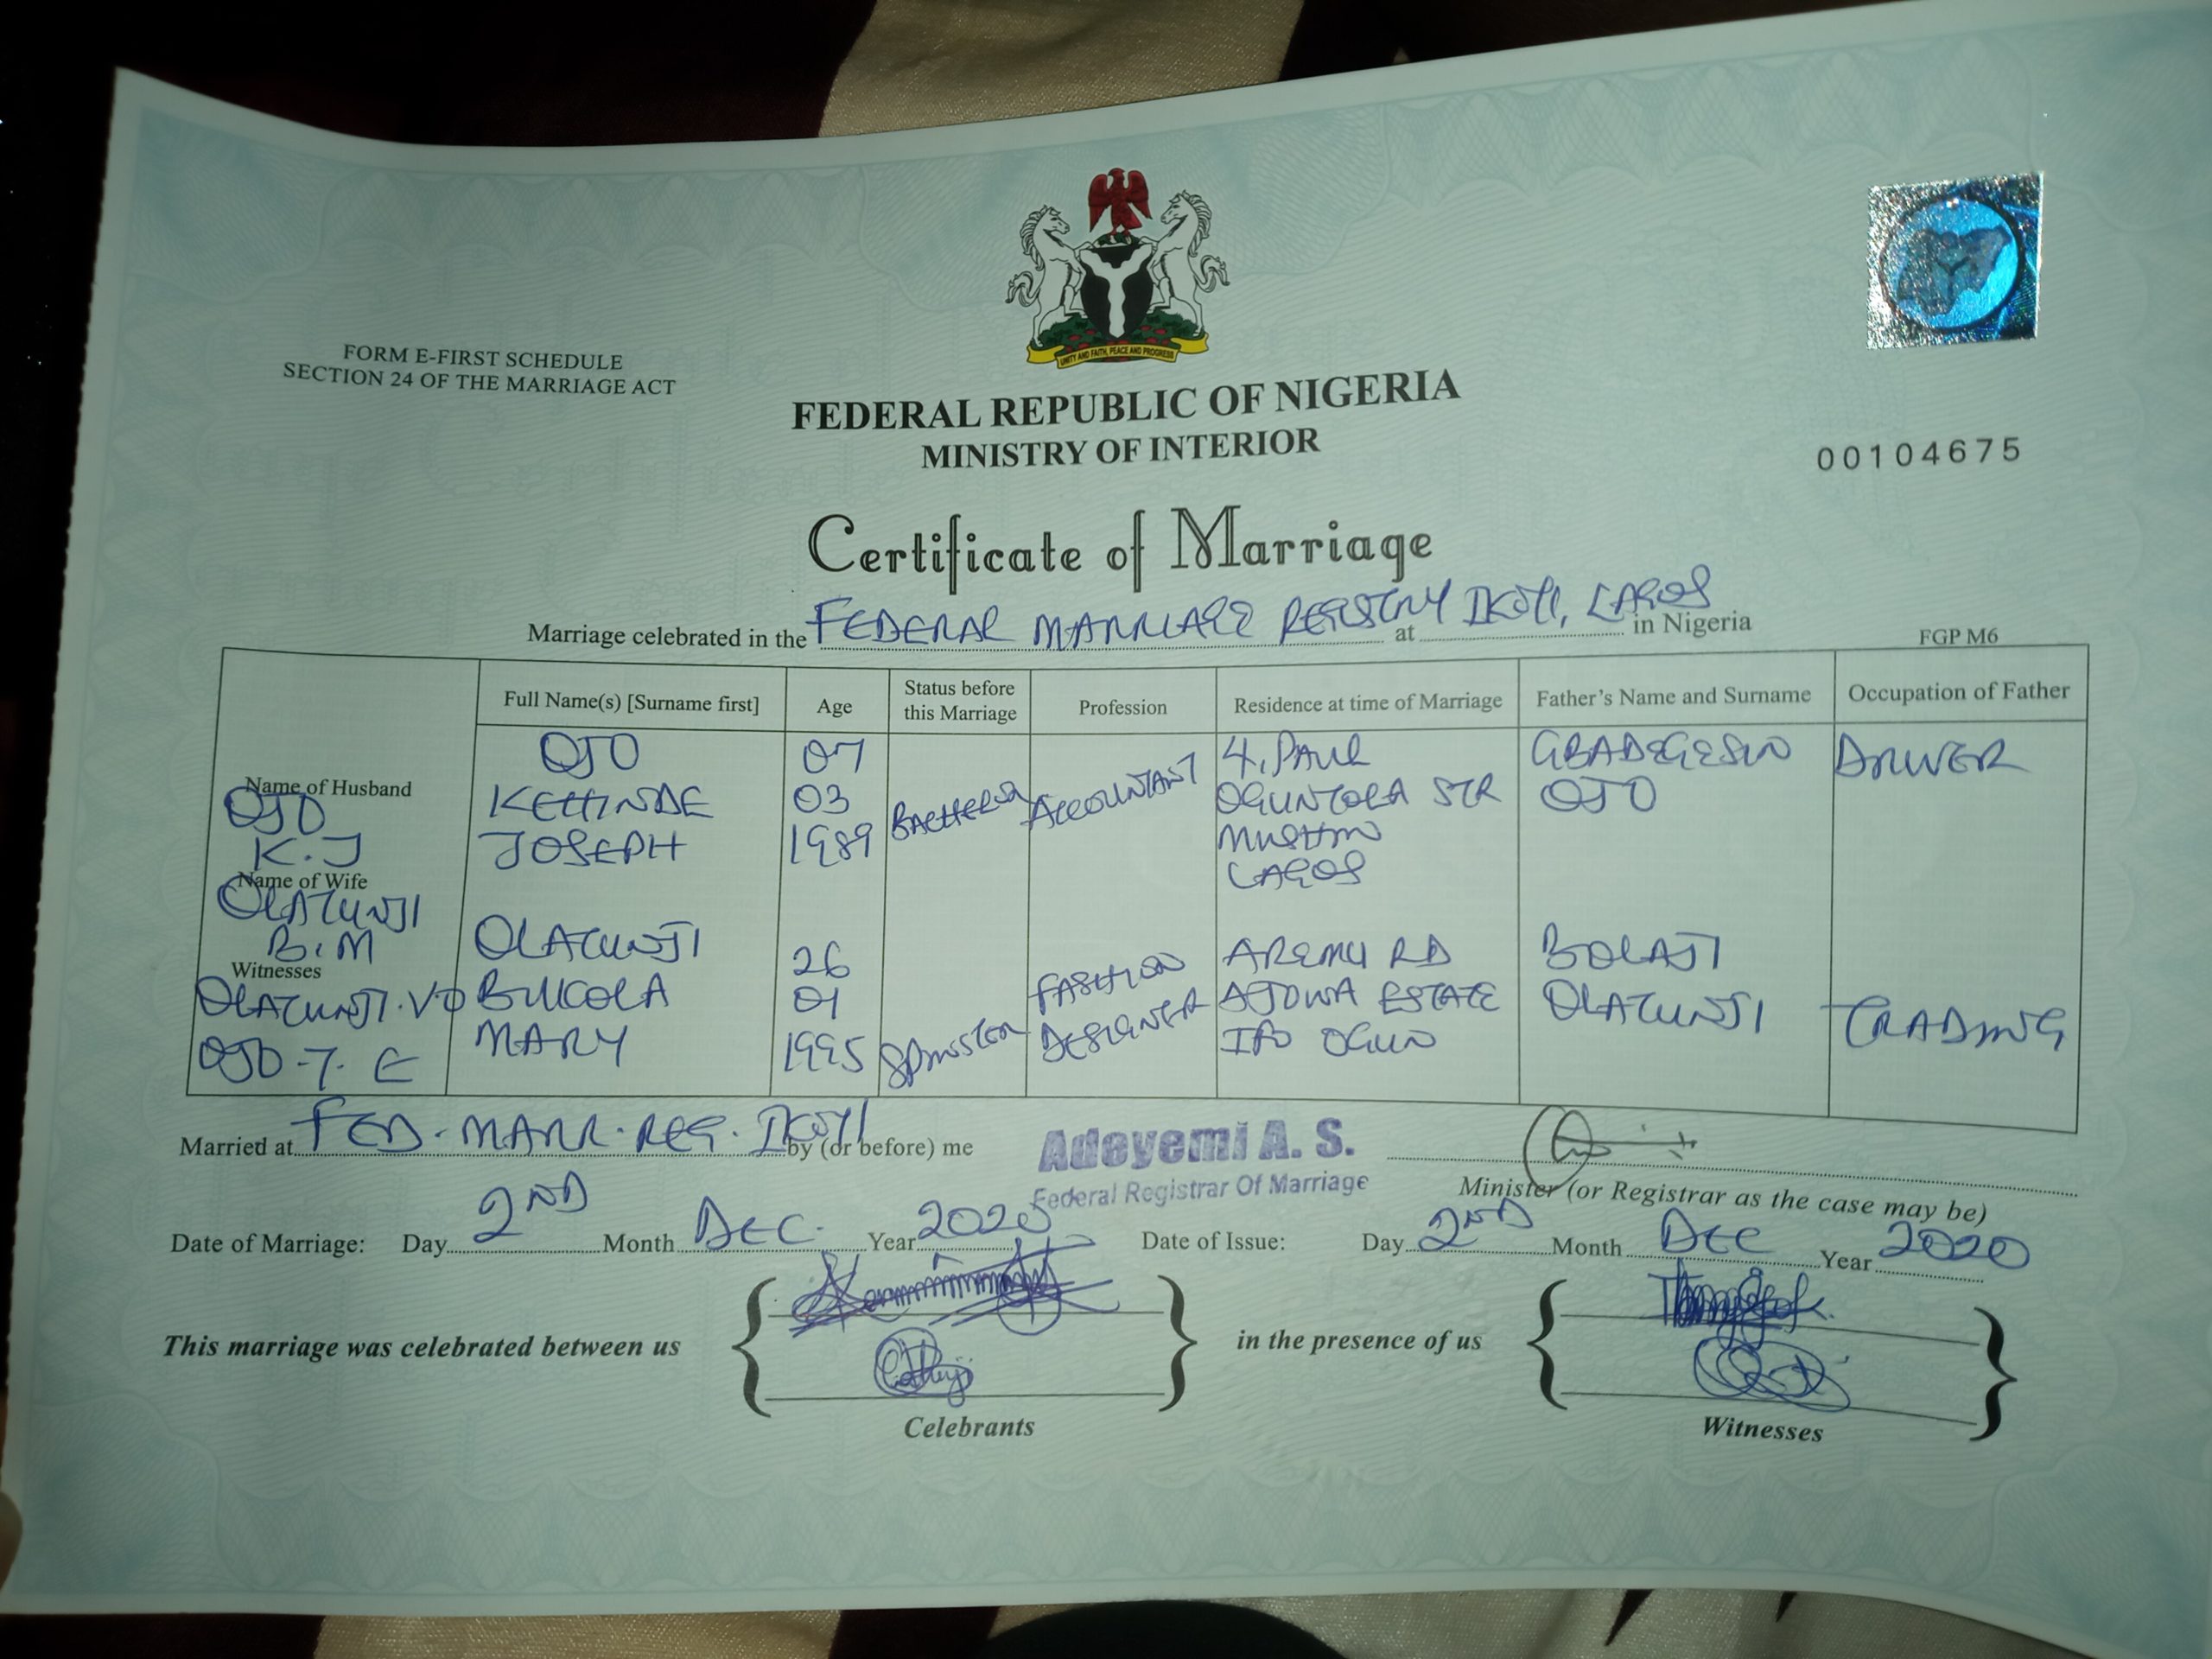 UNITY AND FAITH, PEACE AND PROGRESS
FORM E-FIRST SCHEDULE
SECTION 24 OF THE MARRIAGE ACT
FEDERAL REPUBLIC OF NIGERIA
MINISTRY OF INTERIOR
00104675
Certificate of Marriage
Marriage celebrated in the FEDERAL MARRIAGE REGISTRY IKOYI, LAGOS at in Nigeria
FGP M6
Full Name(s) [Surname first] Age Status before this Marriage Profession Residence at time of Marriage Father's Name and Surname Occupation of Father
Name of Husband
OJO
K.J
OJO
KEHINDE
JOSEPH
07
03
1989
BACHELOR
ACCOUNTANT
4, PAUL
OGUNTOLA STR
MUSHIN
LAGOS
GBADEGESIN
OJO
DRIVER
Name of Wife
OLATUNJI
B.M
OLATUNJI
BUKOLA
MARY
26
01
1995
SPINSTER
FASHION
DESIGNER
AREMU RD
AJOWA ESTATE
IFO OGUN
BOLAJI
OLATUNJI
TRADING
Witnesses
OLATUNJI.V.O
OJO-T.E
Married at FED. MARR. REG. IKOYI by (or before) me
Adeyemi A. S.
Federal Registrar Of Marriage
Minister (or Registrar as the case may be)
Date of Marriage: Day 2ND Month DEC. Year 2020 Date of Issue: Day 2ND Month DEC Year 2020
This marriage was celebrated between us
Celebrants
in the presence of us
Witnesses